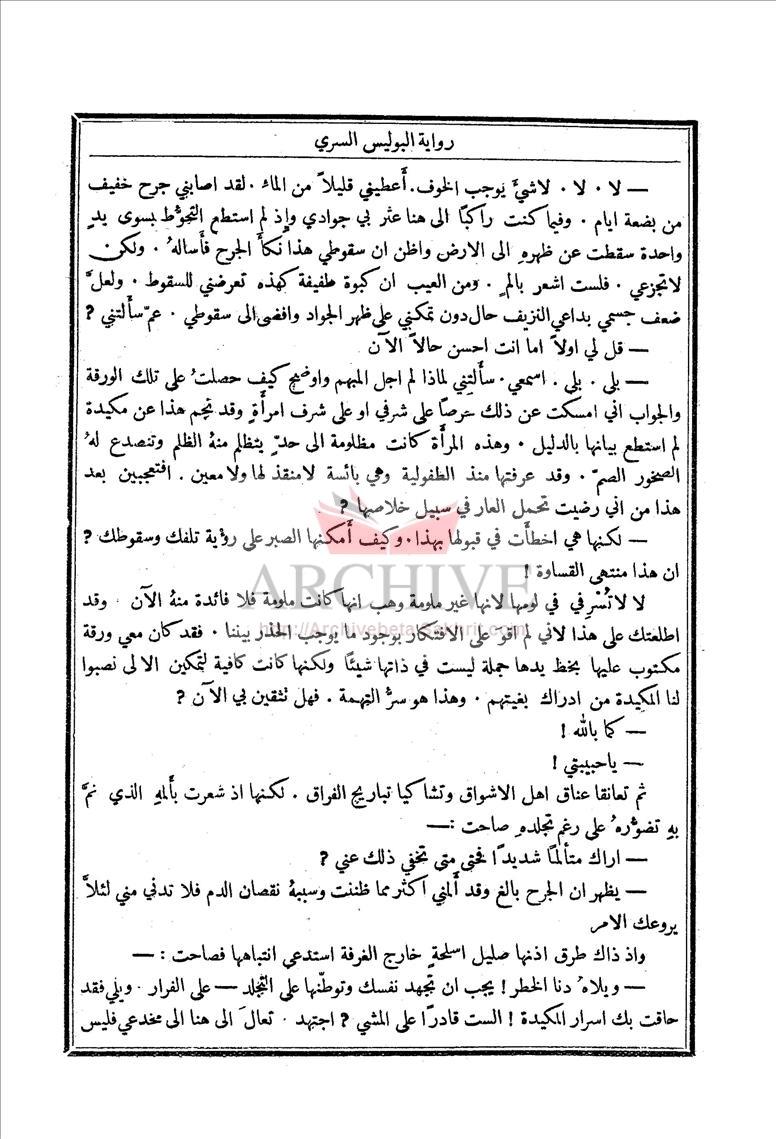 رواية البوليس السري
— لا . لا . لاشيَّ يوجب الخوف . أَعطيني قليلاً من الماء . لقد اصابني جرح خفيف
من بضعة ايام . وفيما كنت راكبًا الى هنا عثر بي جوادي وإذ لم استطع التحوُّط بسوى يدٍ
واحدة سقطت عن ظهرهِ الى الارض واظن ان سقوطي هذا نكأَ الجرح فأَسالهُ . ولكن
لاتجزعي . فلست اشعر بالمٍ . ومن العيب ان كبوة طفيفة كهذه تعرضني للسقوط . ولعلَّ
ضعف جسمي بداعي النزيف حال دون تمكني على ظهر الجواد وافضى الى سقوطي . عمَّ سأَلتني ?
— قل لي اولاً اما انت احسن حالاً الآن
— بلى . بلى . اسمعي . سأَلتِني لماذا لم اجل المبهم واوضح كيف حصلتُ على تلك الورقة
والجواب اني امسكت عن ذلك حرصًا على شرفي او على شرف امرأَةٍ وقد نجم هذا عن مكيدة
لم استطع بيانها بالدليل . وهذه المرأَة كانت مظلومة الى حدٍّ يتظلم منهُ الظلم وتنصدع لهُ
الصخور الصمّ . وقد عرفتها منذ الطفولية وهي بائسة لامنقذ لها ولا معين . افتعجبين بعد
هذا من اني رضيت تحمل العار في سبيل خلاصها ?
— لكنها هي اخطأَت في قبولها بهذا . وكيف أَمكنها الصبر على رؤية تلفك وسقوطك ?
ان هذا منتهى القساوة !
لا لاتُسْرفي في لومها لانها غير ملومة وهب انها كانت ملومة فلا فائدة منهُ الآن . وقد
اطلعتك على هذا لاني لم اقوَ على الافتكار بوجود ما يوجب الحذر بيننا . فقد كان معي ورقة
مكتوب عليها بخط يدها جملة ليست في ذاتها شيئًا ولكنها كانت كافية لتمكين الالى نصبوا
لنا المكيدة من ادراك بغيتهم . وهذا هو سرُّ التهمة . فهل تثقين بي الآن ?
— كما بالله !
— ياحبيبتي !
ثم تعانقا عناق اهل الاشواق وتشاكيا تباريح الفراق . لكنها اذ شعرت بأَلمهِ الذي نمَّ
بهِ تضوُّرهُ على رغم تجلدهِ صاحت :—
— اراك متألمًا شديدًا فحتى متى تخفي ذلك عني ?
— يظهر ان الجرح بالغ وقد أَلمني اكثر مما ظننت وسببهُ نقصان الدم فلا تدني مني لئلاَّ
يروعك الامر
واذ ذاك طرق اذنها صليل اسلحةٍ خارج الغرفة استدعي انتباهها فصاحت : —
— ويلاهُ دنا الخطر ! يجب ان تجهد نفسك وتوطّنها على التجلد — على الفرار . ويلي فقد
حاقت بك اسرار المكيدة ! الست قادرًا على المشي ? اجتهد . تعالَ الى هنا الى مخدعي فليس
ARCHIVE
http://Archivebeta.Sakhrit.com